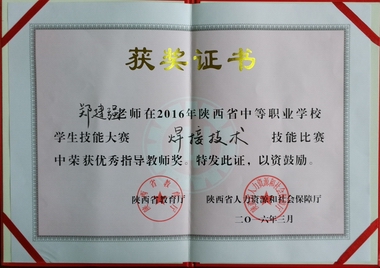 获奖证书
郑建强老师在2016年陕西省中等职业学校
学生技能大赛 焊接技术 技能比赛
中荣获优秀指导教师奖。特发此证，以资鼓励。
陕西省教育厅 陕西省人力资源和社会保障厅
二〇一六年三月